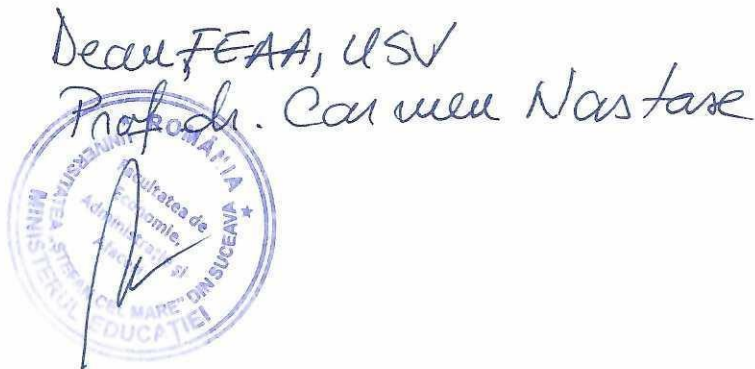 Decan FEAA, USV
Prof. dr. Carmen Nastase
ROMÂNIA
MINISTERUL EDUCAȚIEI
UNIVERSITATEA "ȘTEFAN CEL MARE" DIN SUCEAVA
Facultatea de
Economie,
Administrație și
Afaceri